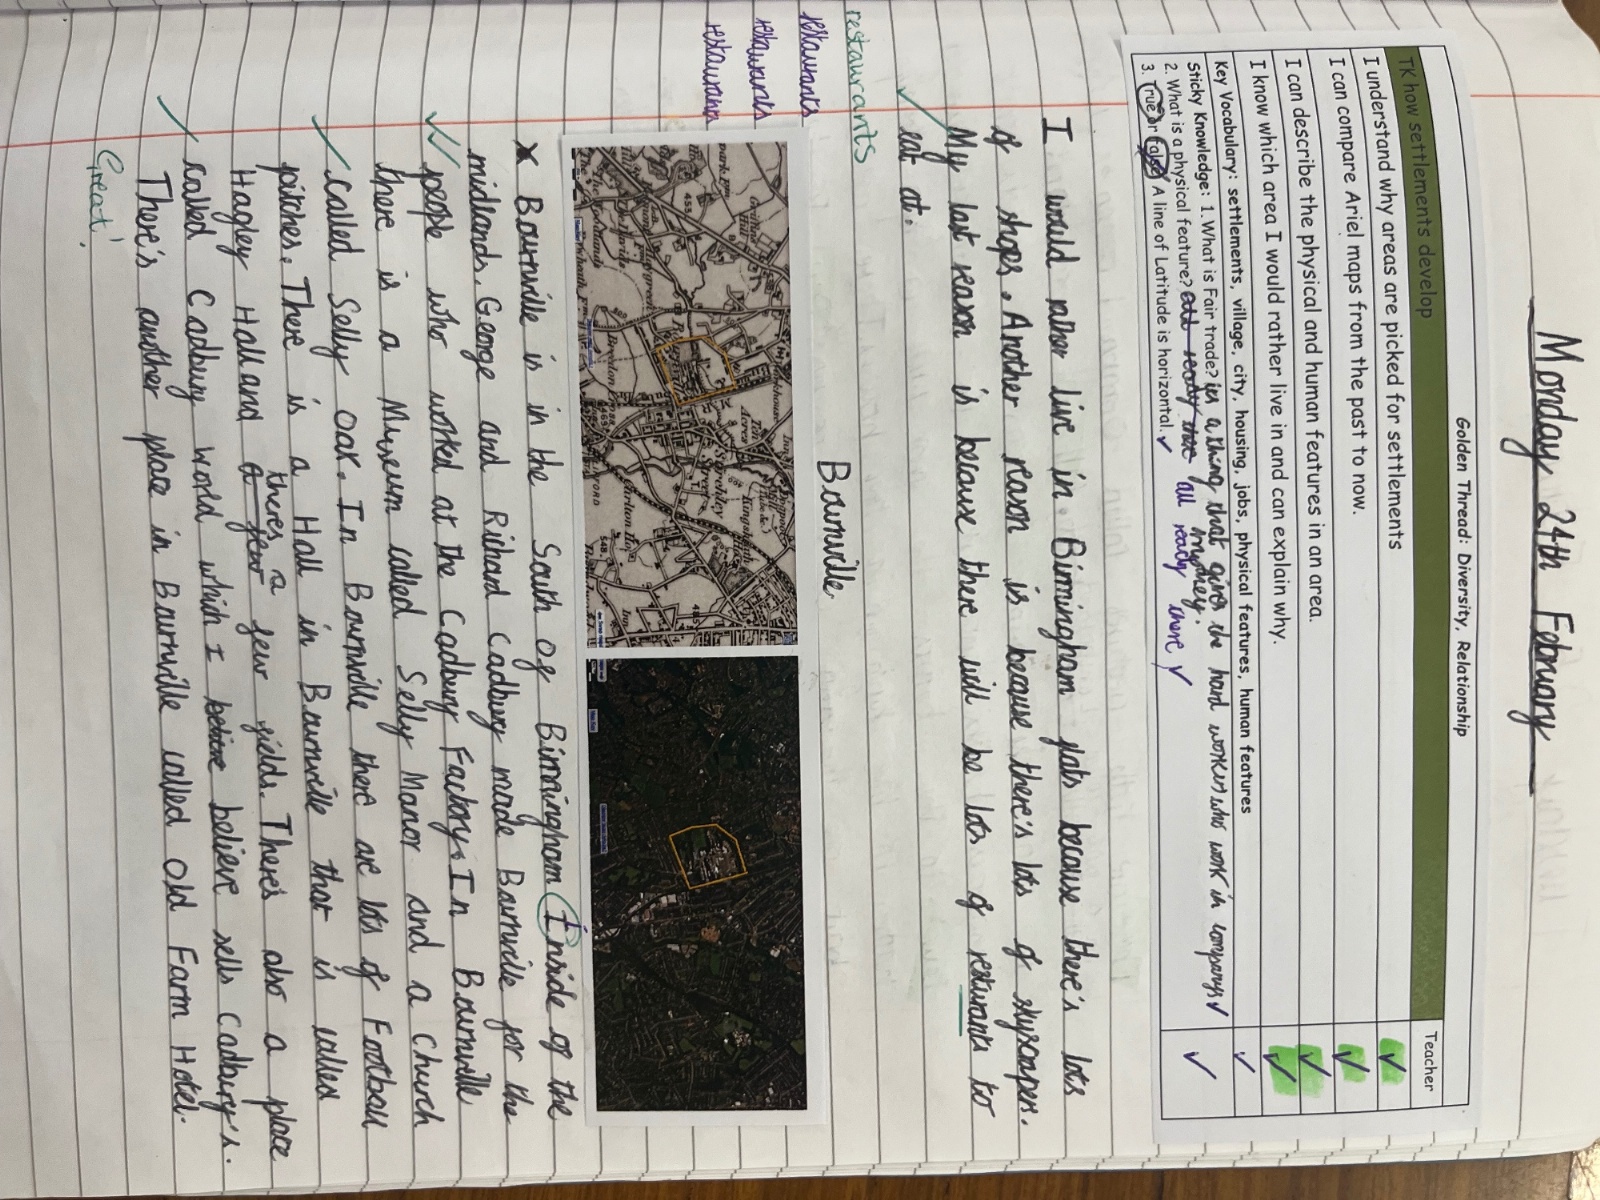 Monday 24th February
Golden Thread: Diversity, Relationship
TK how settlements develop
Teacher
I understand why areas are picked for settlements ✓
I can compare Ariel maps from the past to now. ✓
I can describe the physical and human features in an area. ✓
I know which area I would rather live in and can explain why. ✓
Key Vocabulary: settlements, village, city, housing, jobs, physical features, human features ✓
Sticky Knowledge: 1. What is Fair trade? is a thing that gives the hard workers who work in companys ✓
money.
2. What is a physical feature? all ready there all ready there ✓
3. True or false? A line of Latitude is horizontal. ✓
✓
I would rather live in. Birmingham flats because there's lots
of shops. Another reason is because there's lots of skyscapers.
My last reason is because there will be lots of resturants to
eat at.
restaurants
restaurants
restaurants
restaurants
Bournville
Bournville is in the South of Birmingham Inside of the
midlands. George and Richard Cadbury made Bournville for the
people who worked at the Cadbury Factory. In Bournville
there is a Museum called Selly Manor and a Church
called Selly Oak. In Bournville there are lots of Football
pitches. There is a Hall in Bournville that is called
theres a
Hagley Hall and a few few yields. There's also a place
called Cadbury world which I beleive believe sells Cadbury's.
There's another place in Bournville called Old Farm Hotel.
Great!